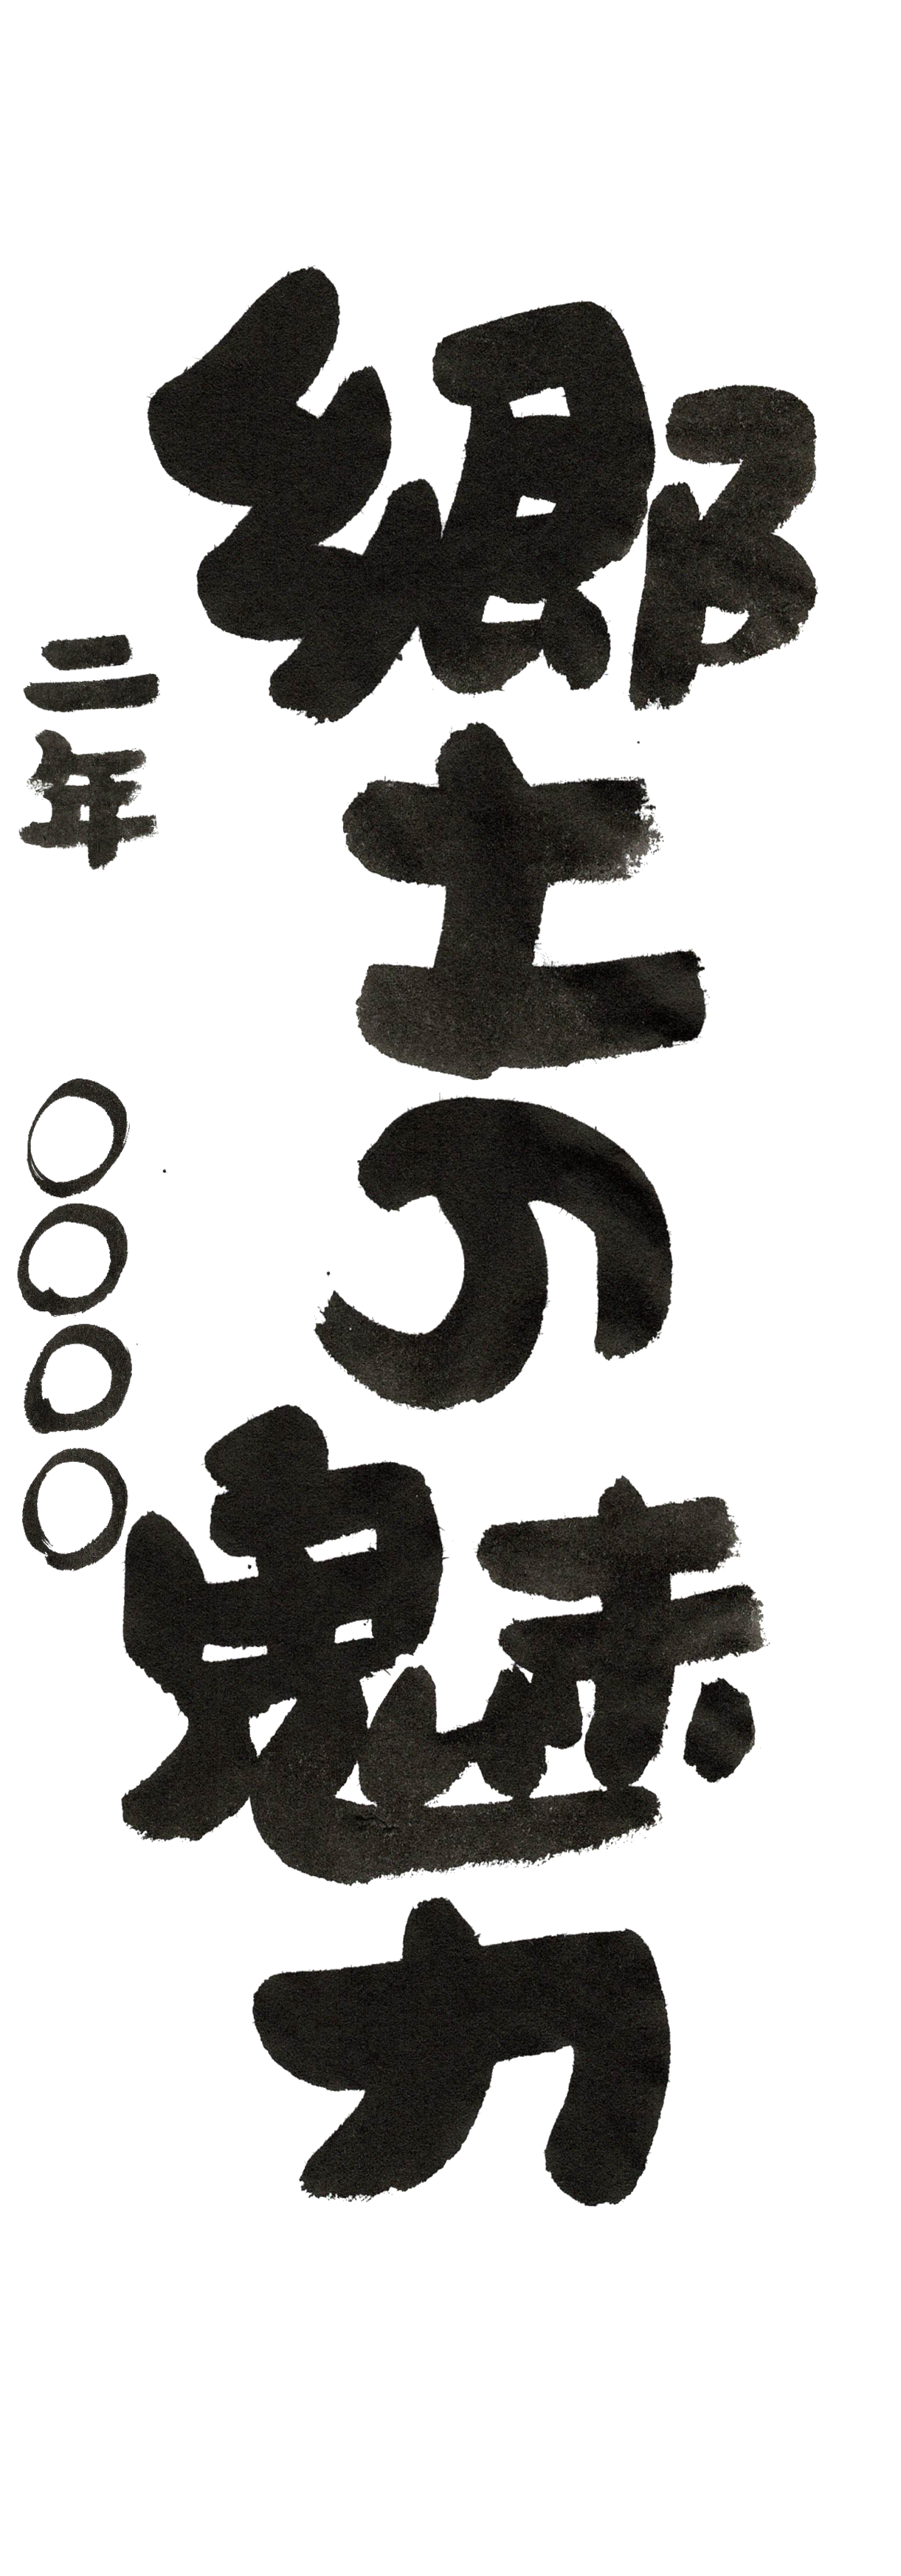 郷土の魅力
二年 〇〇〇〇